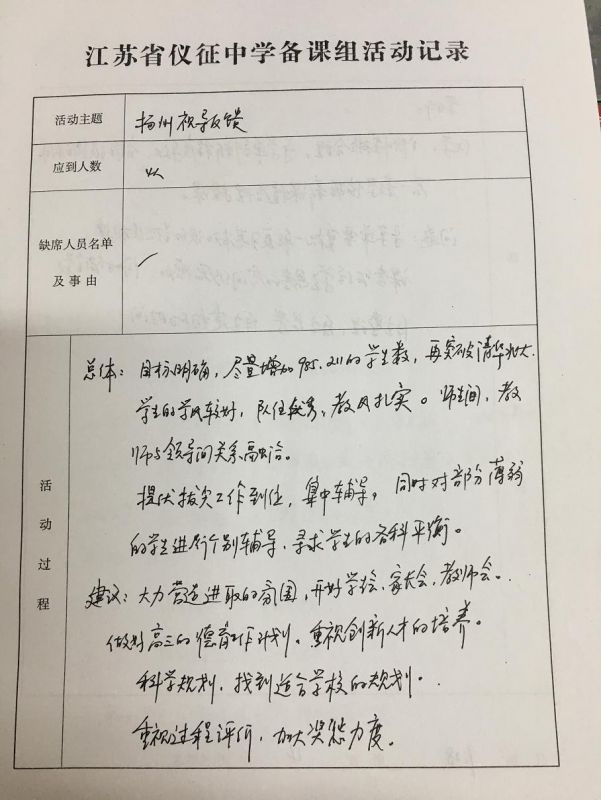 江苏省仪征中学备课组活动记录
活动主题
扬州视导反馈
应到人数
缺席人员名单
及事由
活动过程
总体：目标明确，尽量增加985.211的学生数，再突破清华北大.
学生的学风较好，队伍优秀、教风扎实。师生间，教
师与领导间关系融洽。
提优拔尖工作到位，集中辅导，同时对部分薄弱
的学生进行个别辅导，寻求学生的各科平衡。
建议：大力营造进取的氛围，开好学生会，家长会，教师会。
做好高三的德育工作计划。重视创新人才的培养。
科学规划，找到适合学校的规划。
重视过程评价，加大奖惩力度。